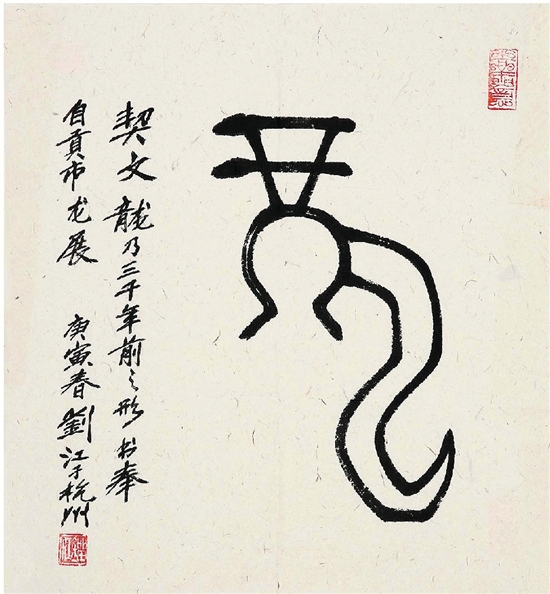 龍
契文龍乃三千年前之形书奉
自貢市龙展　庚寅春劉江于杭州